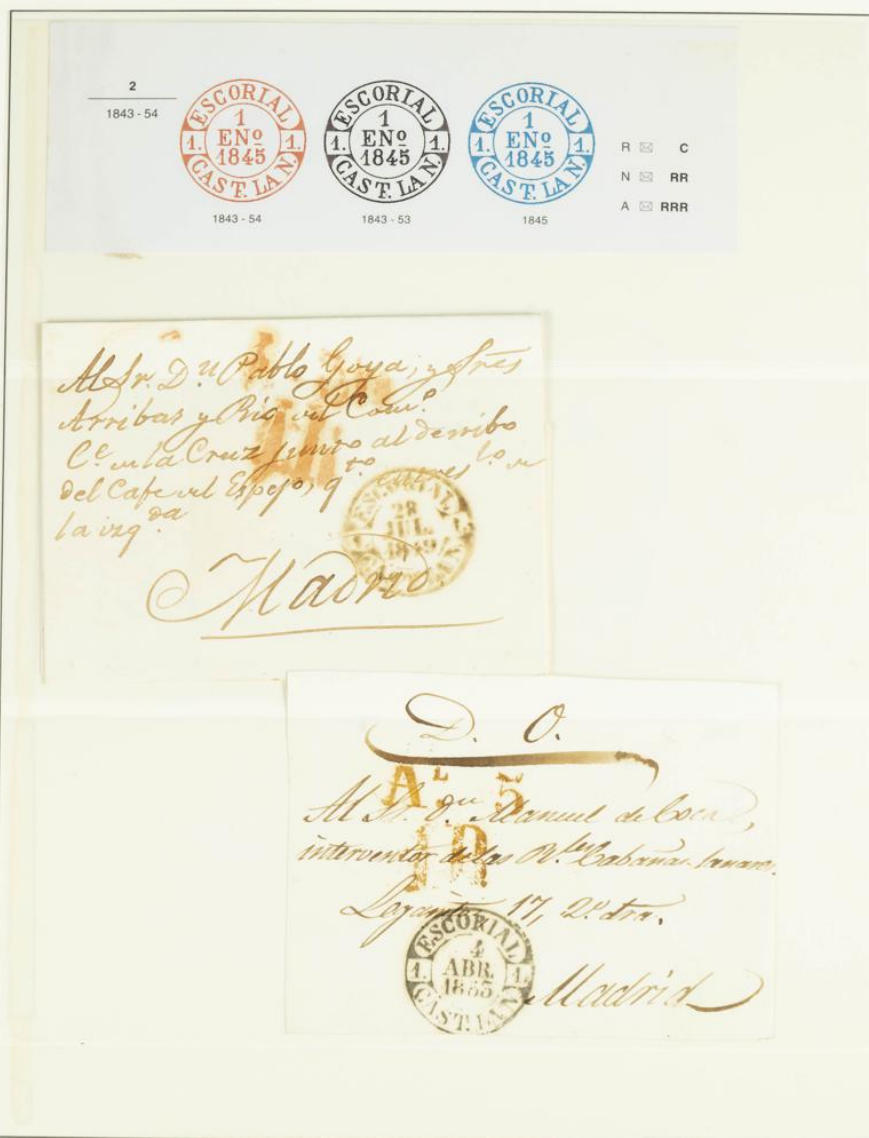 2
1843 - 54
ESCORIAL
1
ENº
1845
1. 1.
CAST. LAN.
1843 - 54
ESCORIAL
1
ENº
1845
1. 1.
CAST. LAN.
1843 - 53
ESCORIAL
1
ENº
1845
1. 1.
CAST. LAN.
1845
R C
N RR
A RRR
Al Sr. Dn Pablo Goya, y Sres
Arribas y Rio del Comº
Ce de la Cruz junto al derribo
del Cafe del Espejo, qto
la izqda
Madrid
ESCORIAL
28
JUL.
1849
D. O.
AL 5
1R
Al Sr. Dn Manuel de
interventor de las Rles Cabañas
17, 2º dra.
Madrid
ESCORIAL
4
ABR.
1853
1. 1.
CAST. LAN.